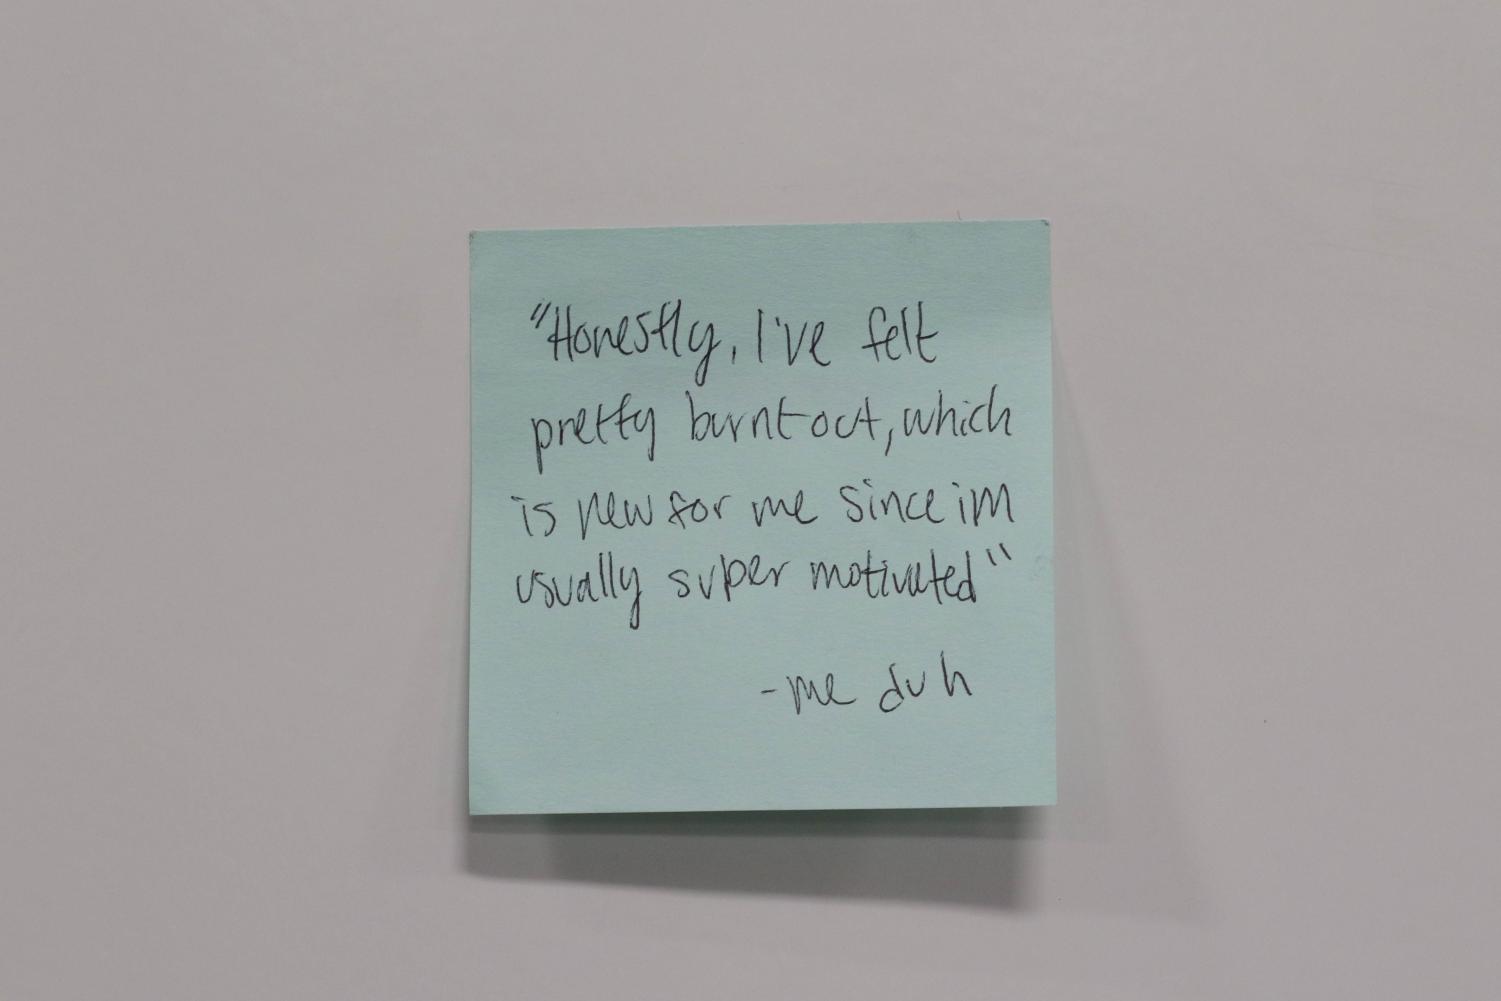 "Honestly, I've felt
pretty burnt out, which
is new for me since im
usually super motivated"
-me duh